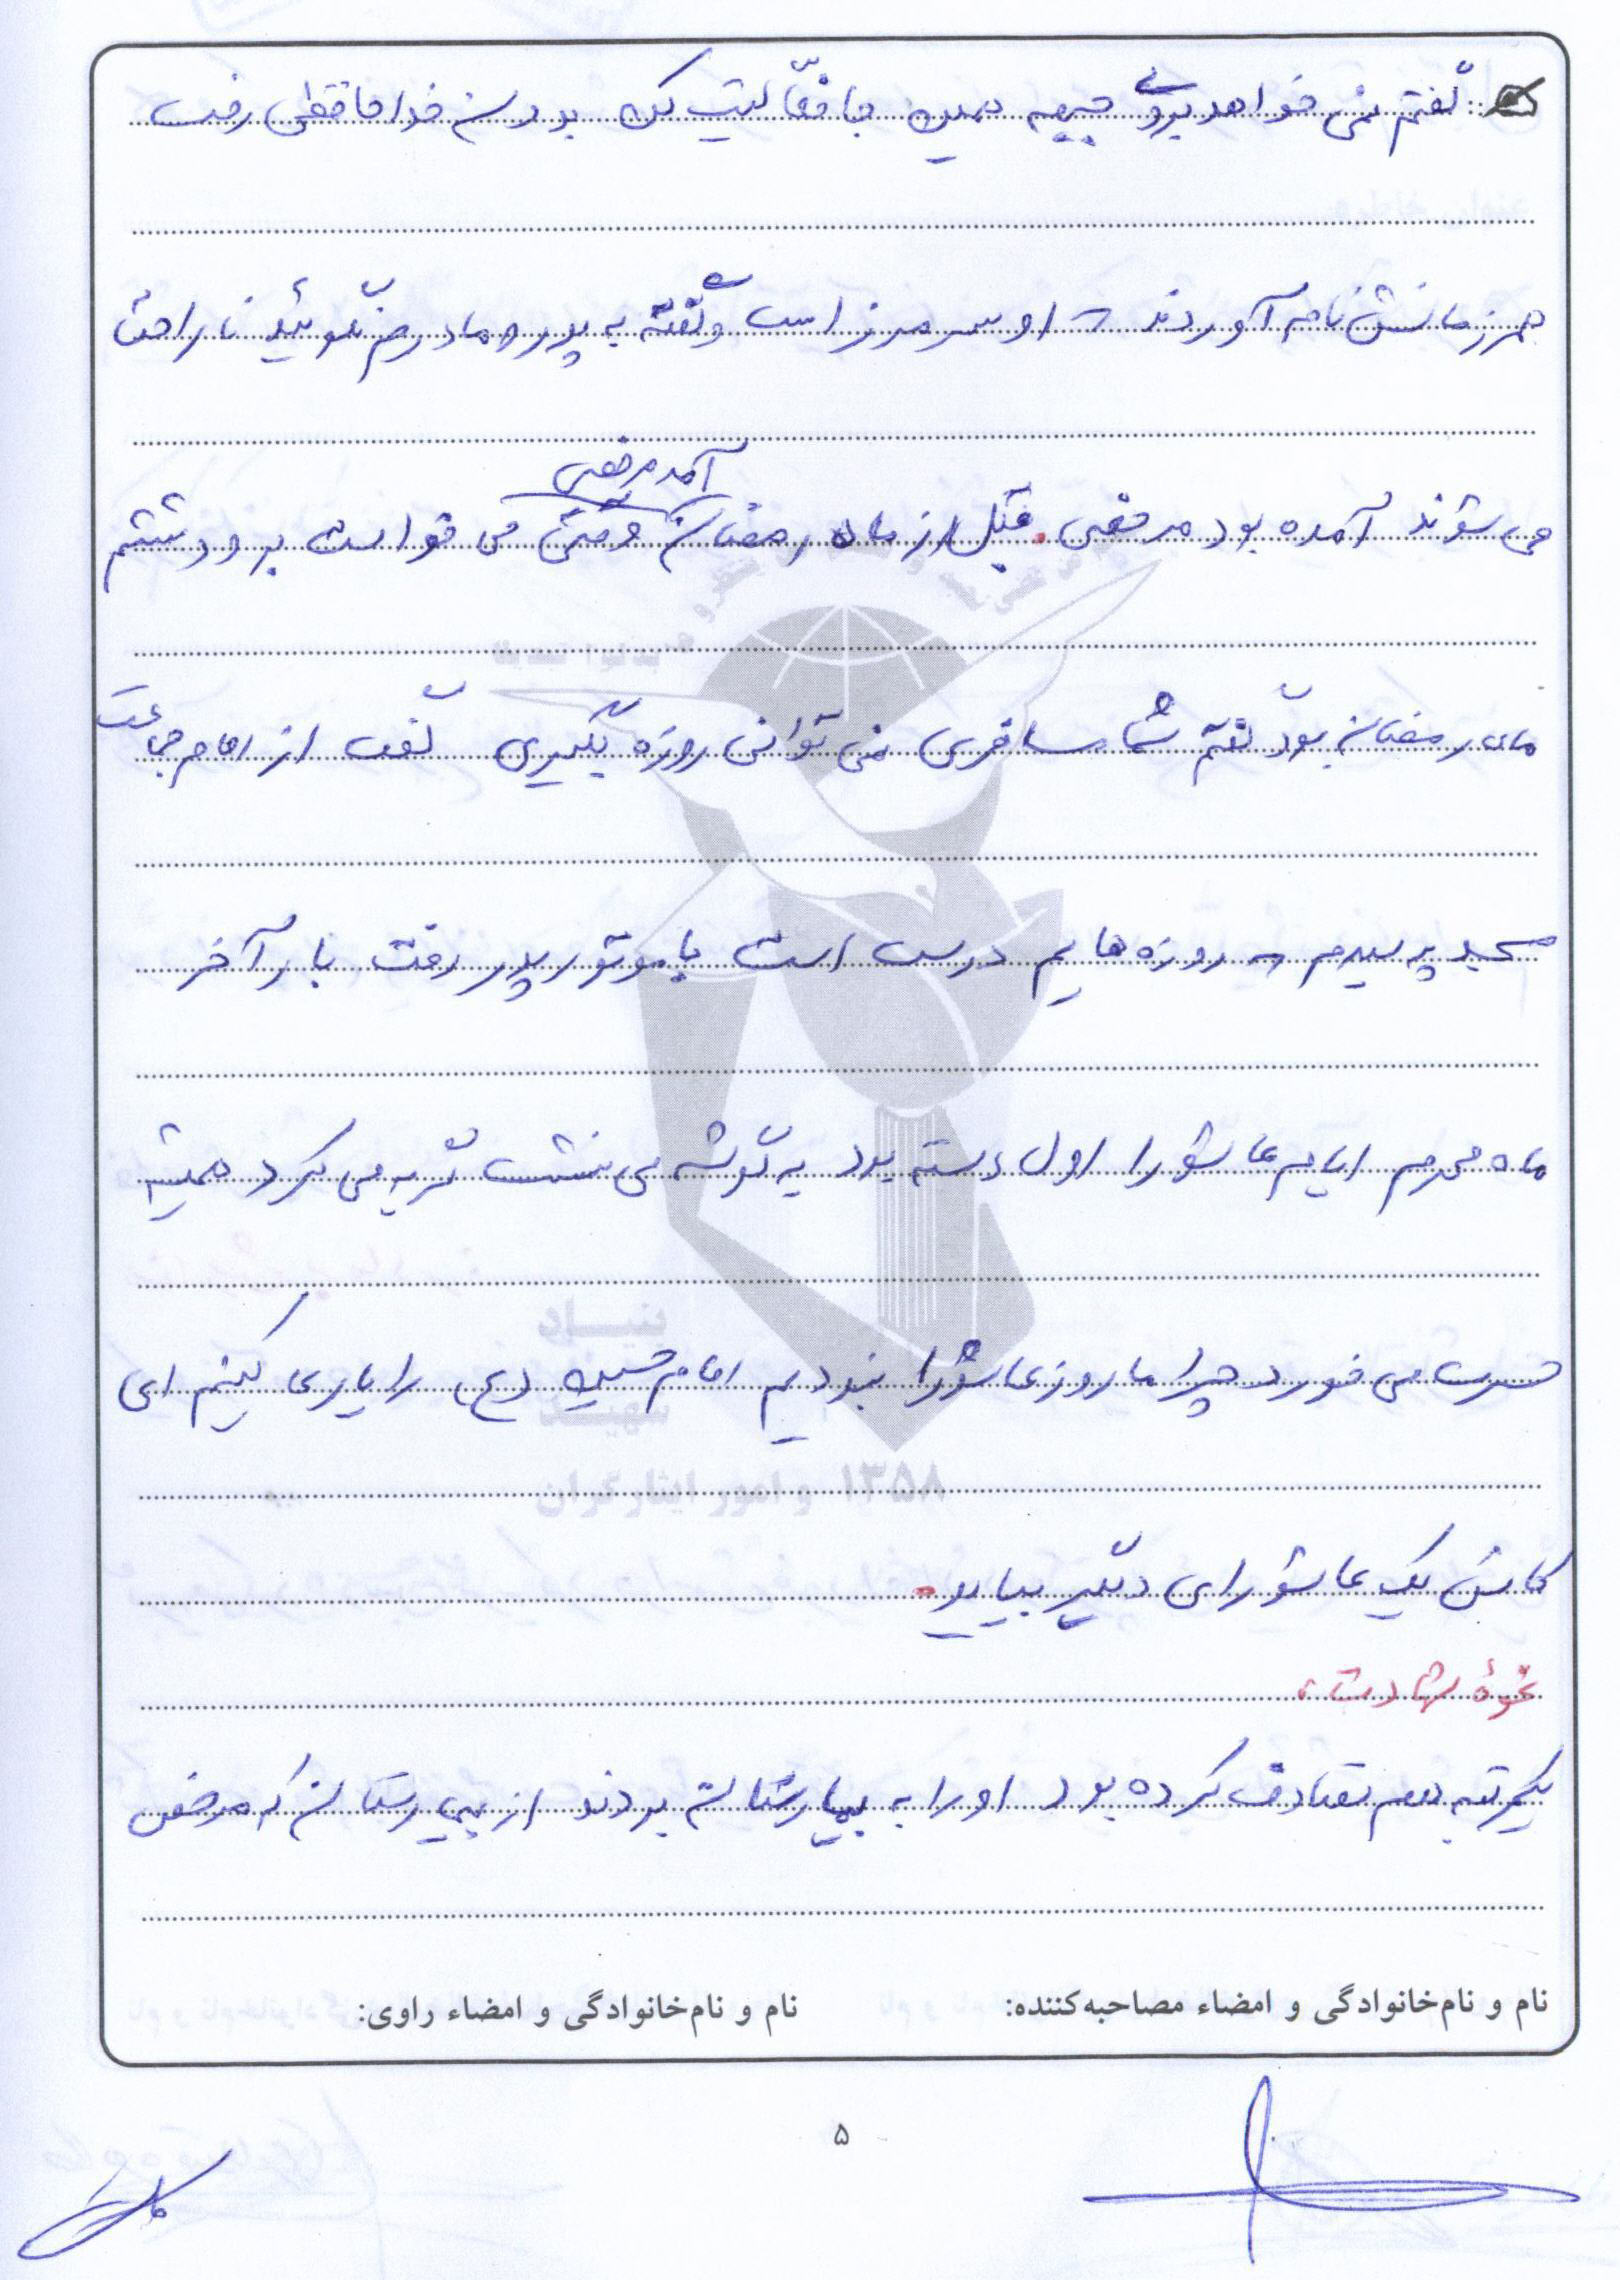 گفتم نمی خواهد بروی جبهه همین جا فعّالیت کن بدون خداحافظی رفت
همرزمانش نامه آوردند که او سر مرز است و گفته به پدر و مادرم نگوئید ناراحت
آمد مرخصی
می شوند آمده بود مرخصی. قبل از ماه رمضان وقتی می خواست برود گفتم
ماه رمضان بود گفتم شما مسافری نمی توانی روزه بگیری گفت از امام جماعت
مسجد پرسیدم که روزه هایم درست است با موتور پدر رفت بار آخر
ماه محرم ایام عاشورا اول دسته بود یه گوشه می نشست گریه می کرد همیشه
حسرت می خورد چرا ما روز عاشورا نبودیم امام حسین (ع) را یاری کنیم ای
کاش یک عاشورای دیگر بیاید.
نحوۀ شهادت:
یکمرتبه هم تصادف کرده بود او را به بیمارستان بردند از بیمارستان که مرخص
نام و نام‌خانوادگی و امضاء مصاحبه‌کننده: نام و نام‌خانوادگی و امضاء راوی:
۵
بنیاد
شهید
و امور ایثارگران ۱۳۵۸